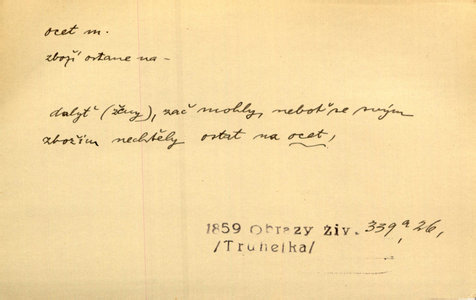 ocet m.
zboží ostane na –
dalyť (ženy), zač mohly, neboť se svým
zbožím nechtěly ostat na ocet,
1859 Obrazy živ. 339a, 26,
/Truhelka/